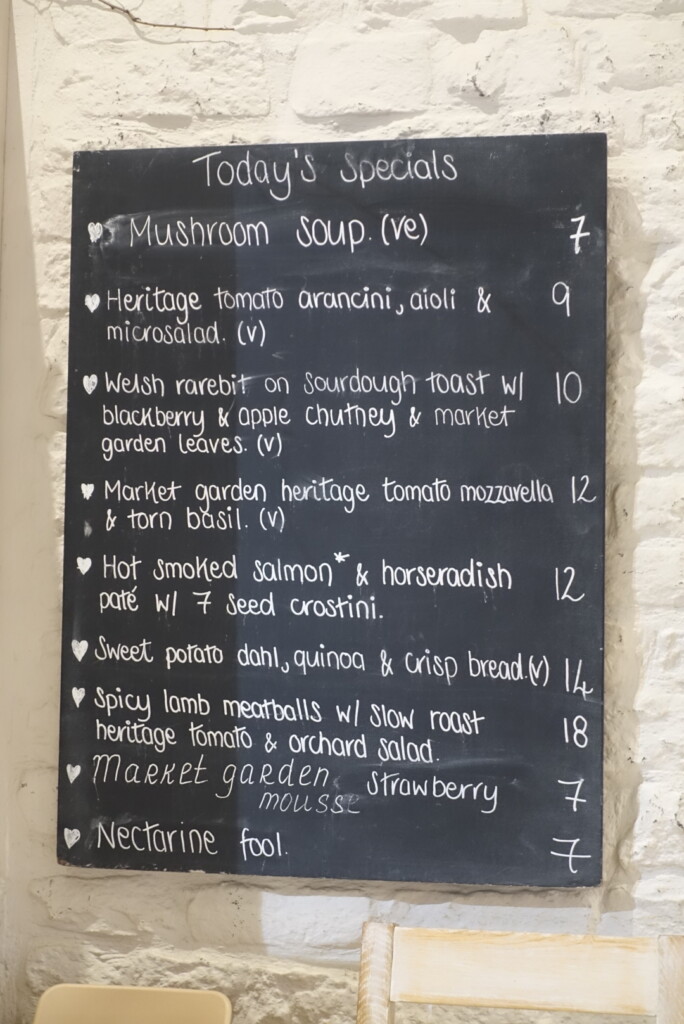 Today's Specials
Mushroom Soup. (ve) 7
Heritage tomato arancini, aioli & 9
microsalad. (v)
Welsh rarebit on sourdough toast w/ 10
blackberry & apple chutney & market
garden leaves. (v)
Market garden heritage tomato mozzarella 12
& torn basil. (v)
Hot smoked salmon* & horseradish 12
paté w/ 7 seed crostini.
Sweet potato dahl, quinoa & crisp bread.(v) 14
Spicy lamb meatballs w/ slow roast 18
heritage tomato & orchard salad.
Market garden strawberry 7
mousse
Nectarine fool. 7